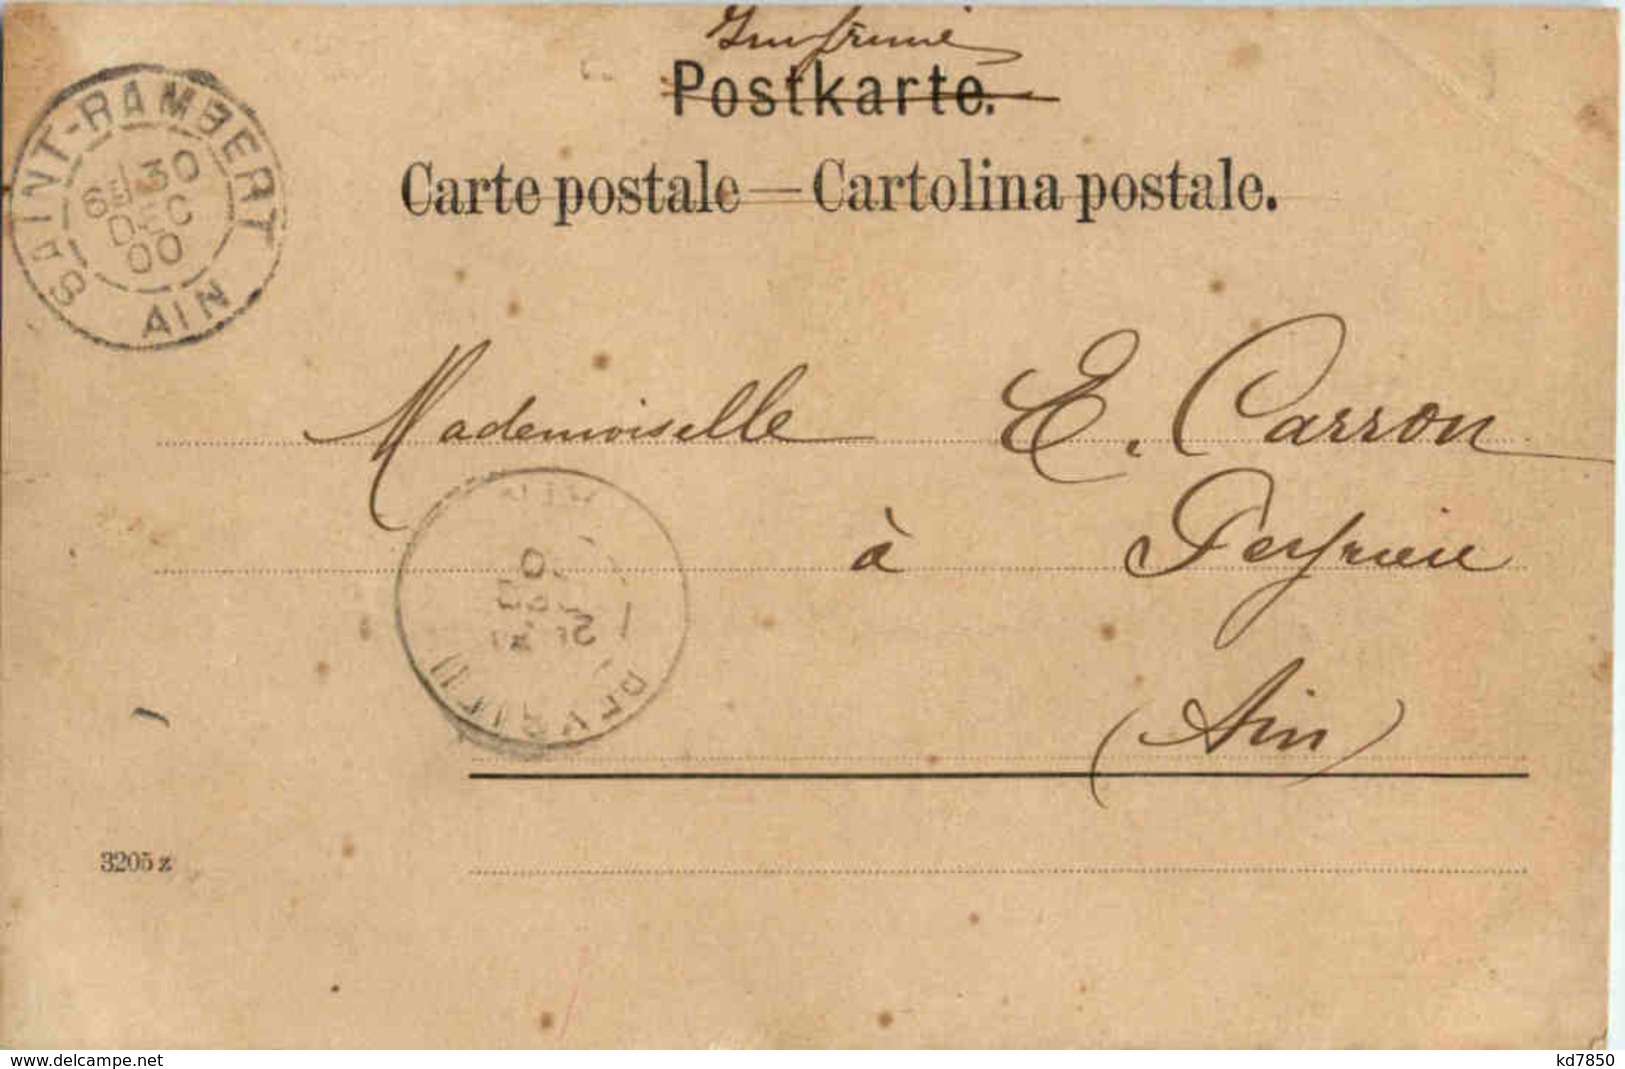 Imprimé
Postkarte.
Carte postale — Cartolina postale.
SAINT-RAMBERT
30
DEC
00
AIN
Mademoiselle E. Carron
à Peyrieu
(Ain)
AIN
PEYRIEU
3205 z
www.delcampe.net
kd7850